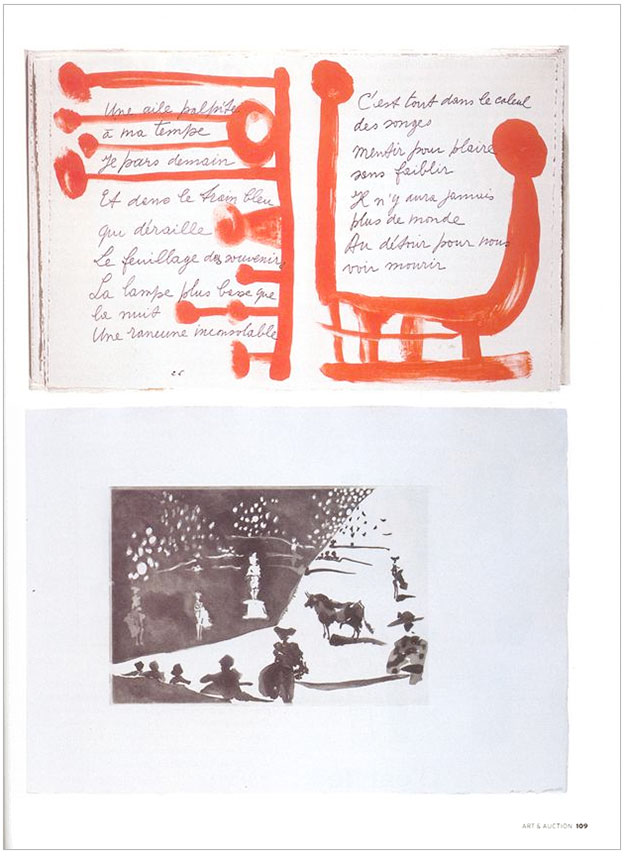 Une aile palpite
à ma tempe
Je pars demain
Et dans le train bleu
qui déraille
Le feuillage des souvenirs
La lampe plus basse que
la nuit
Une rancune inconsolable
26
C'est tout dans le calcul
des songes
mentir pour plaire
sans faiblir
Il n'y aura jamais
plus de monde
Au détour pour nous
voir mourir
ART & AUCTION 109